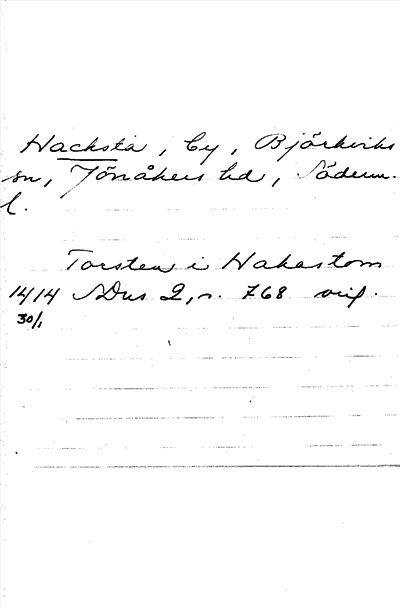 Hacksta, by, Björkviks
sn, Jönåkers hd, Söderm.
l.
Torsten i Hakastom
1414 SDns 2, n. 768 orig.
30/1